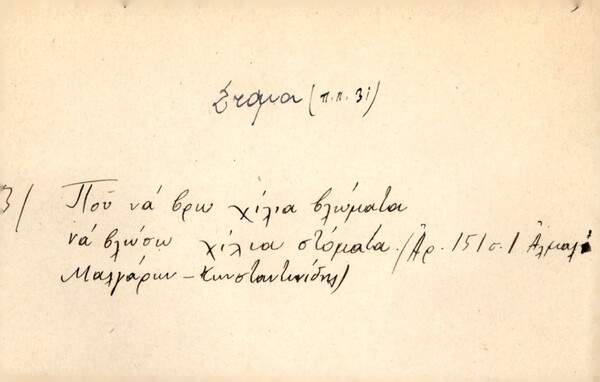 Στόμα (π.π. 31)
3/ Ποῦ νά βρω χίλια βλώματα
νά βλώσω χίλια στόματα. (Ἀρ. 151 σ. 1 Ἀλμαλὶ
Μαλγάρων - Κωνσταντινίδης)